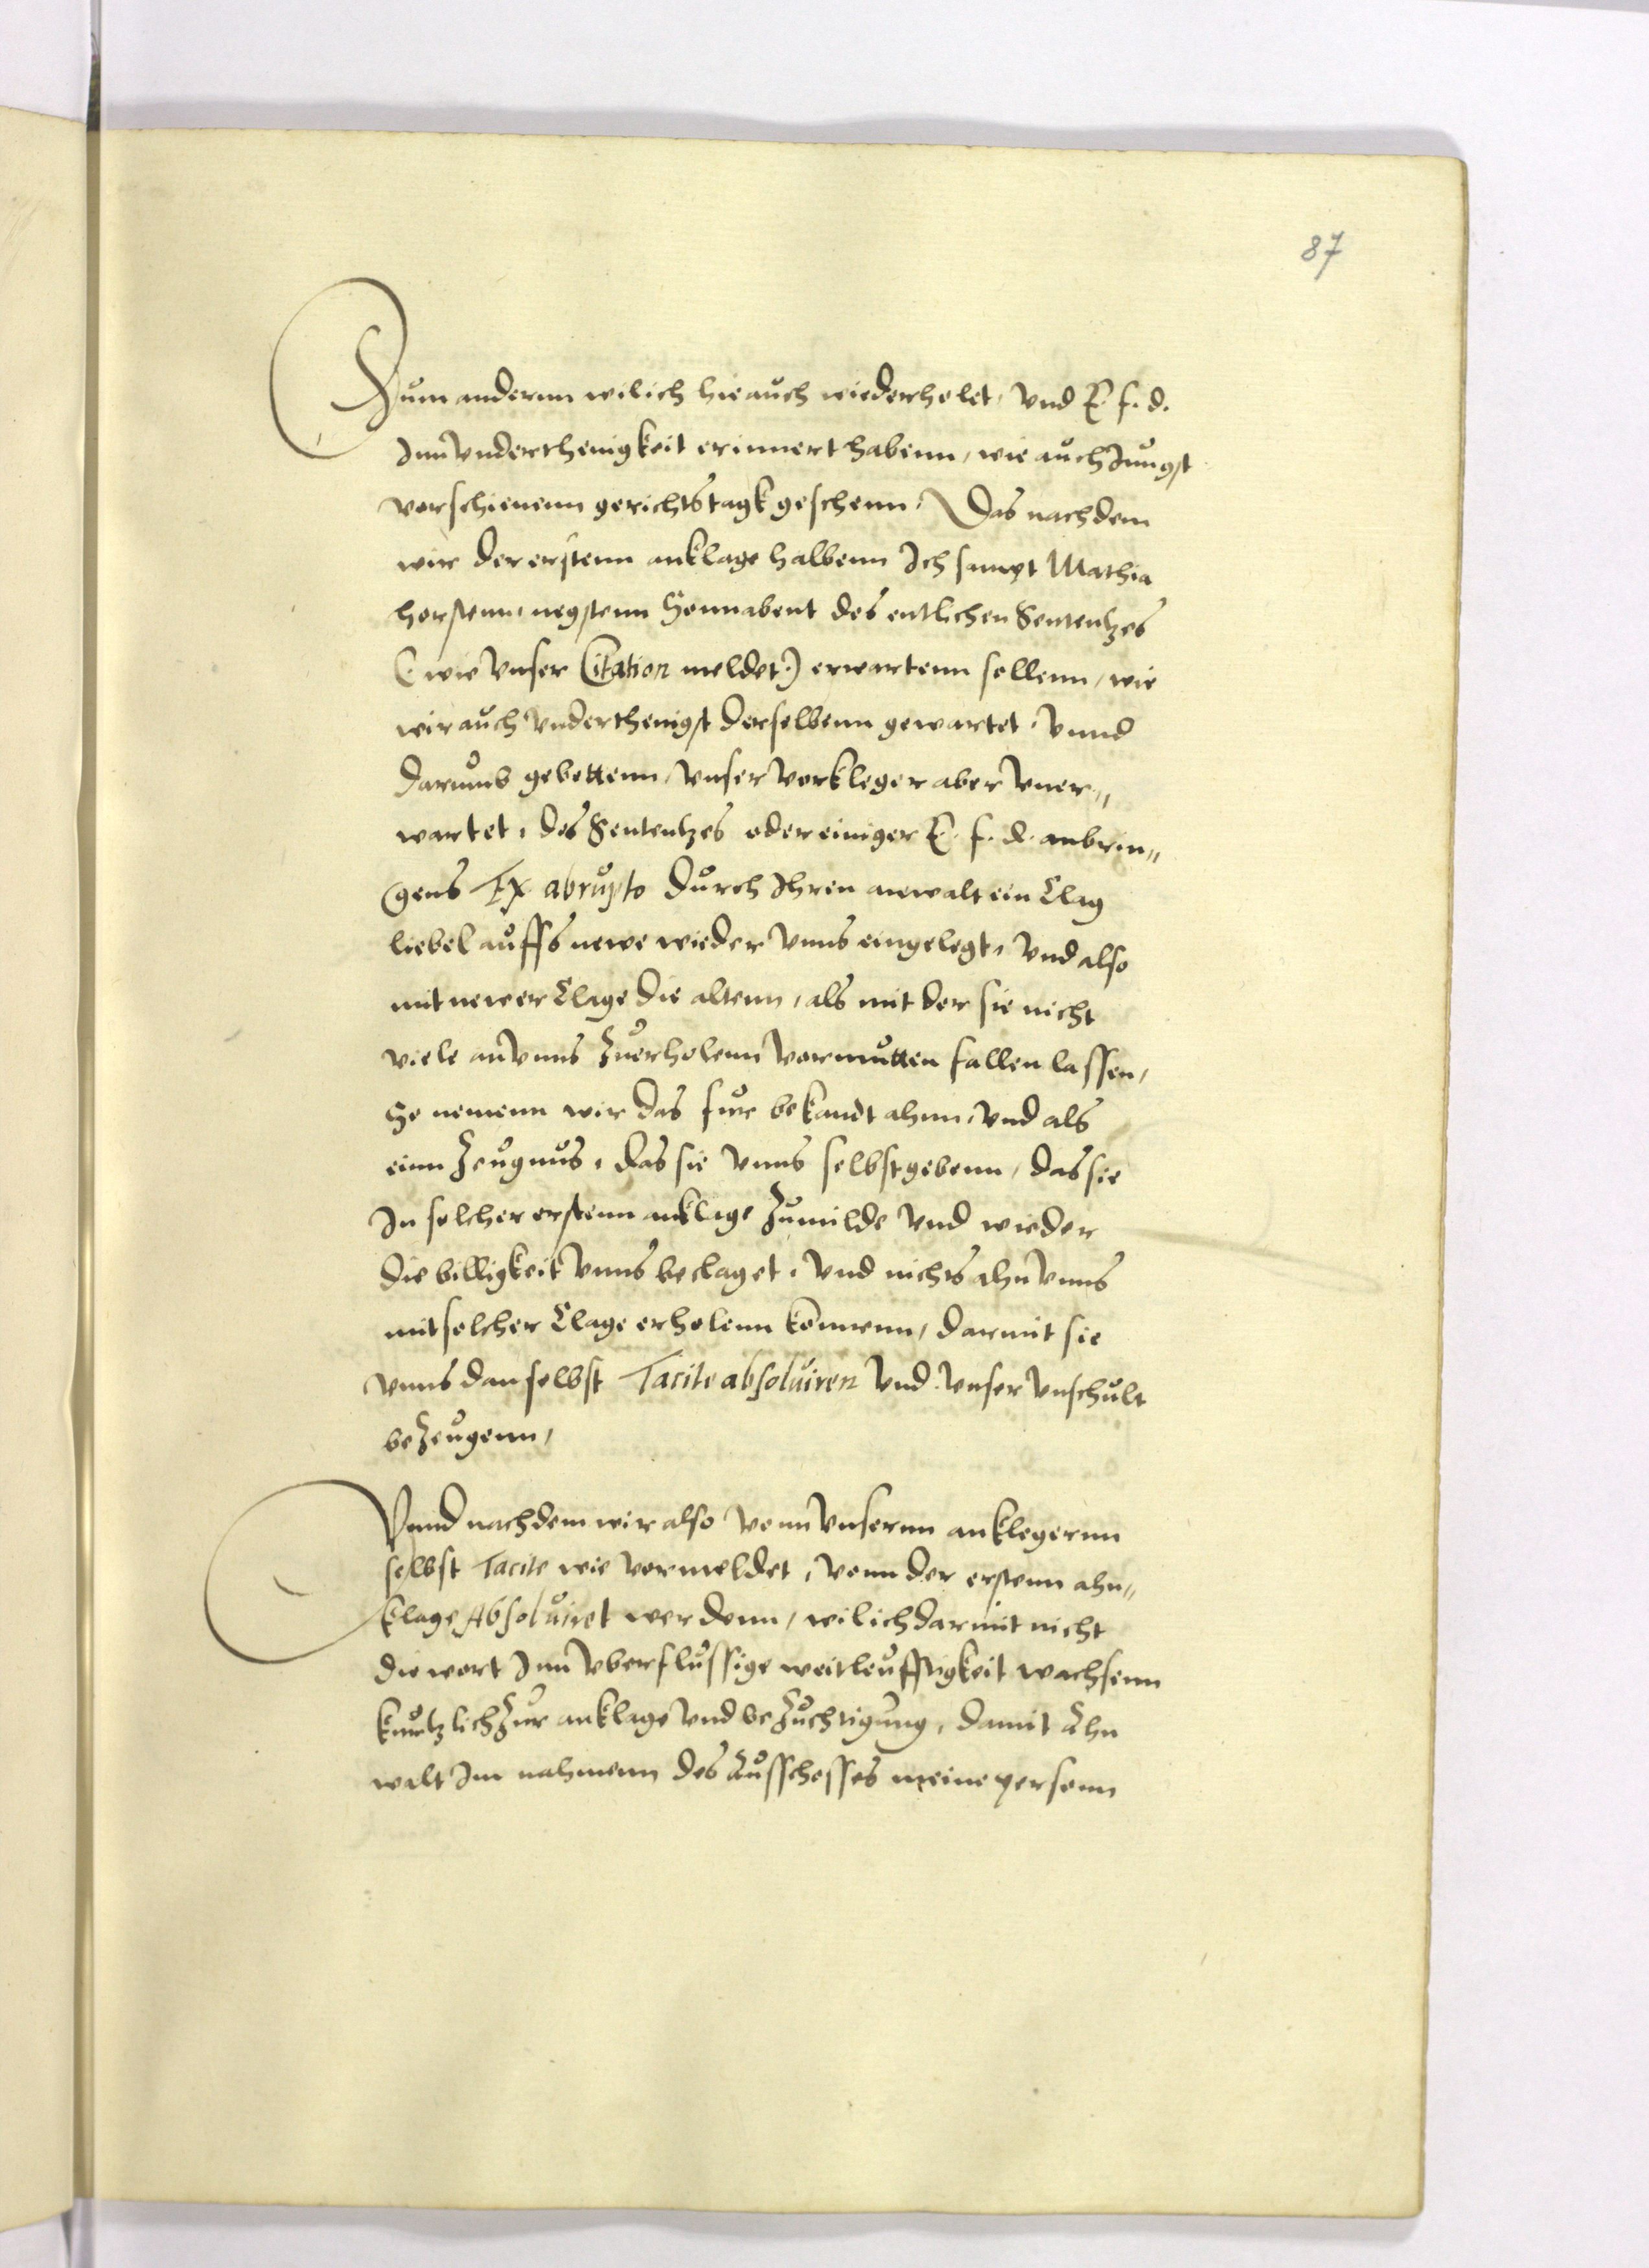 87
Zum andernn wil ich hie auch wiederholet, vnd E. f. d.
Inn vnderthenigkeit erinnert habenn, wie auch Jungst
vorschienenn gerichtstagk geschenn, Das nachdem
wir der erstenn anklage halbenn Ich sampt Mathia
horstenn, negstenn Sonnabent des entlichen Sententzes
(: wie vnser Citation meldet :) erwartenn sollenn, wie
wir auch vnderthenigst derselbenn gewartet, vnnd
darumb gebettenn, vnser vorkleger aber vner„
wartet, des Sententzes oder einiger E. f. d. anbrin„
gens Ex abrupto durch Ihren anwalt ein Clag
liebel auffs newe wieder vnns eingelegt, vnd also
mit newer Clage die altenn, als mit der sie nicht
viele an vnns zuerholenn vormutten fallen lassen,
So nemenn wir das fur bekandt ahnn, vnd als
einn Zeugnus, das sie vnns selbst gebenn, das sie
In solcher erstenn anklage zumilde vnd wieder
die billigkeit vnns beclaget, vnd nichts ahn vnns
mit solcher Clage erholenn konnenn, darmit sie
vnns dan selbst Tacite absoluiren vnd vnser vnschult
bezeugenn,
Vnnd nachdem wir also vonn vnsernn anklegernn
selbst Tacite wie vormeldet, vonn der erstenn ahn„
klage Absoluiret werdenn, wil ich darmit nicht
die wort Inn vberflussige weitleufftigkeit wachsenn
kurtzlich zur anklage vnd bezuchtigung, damit Ahn
walt Im nahmenn des Ausschosses meine personn